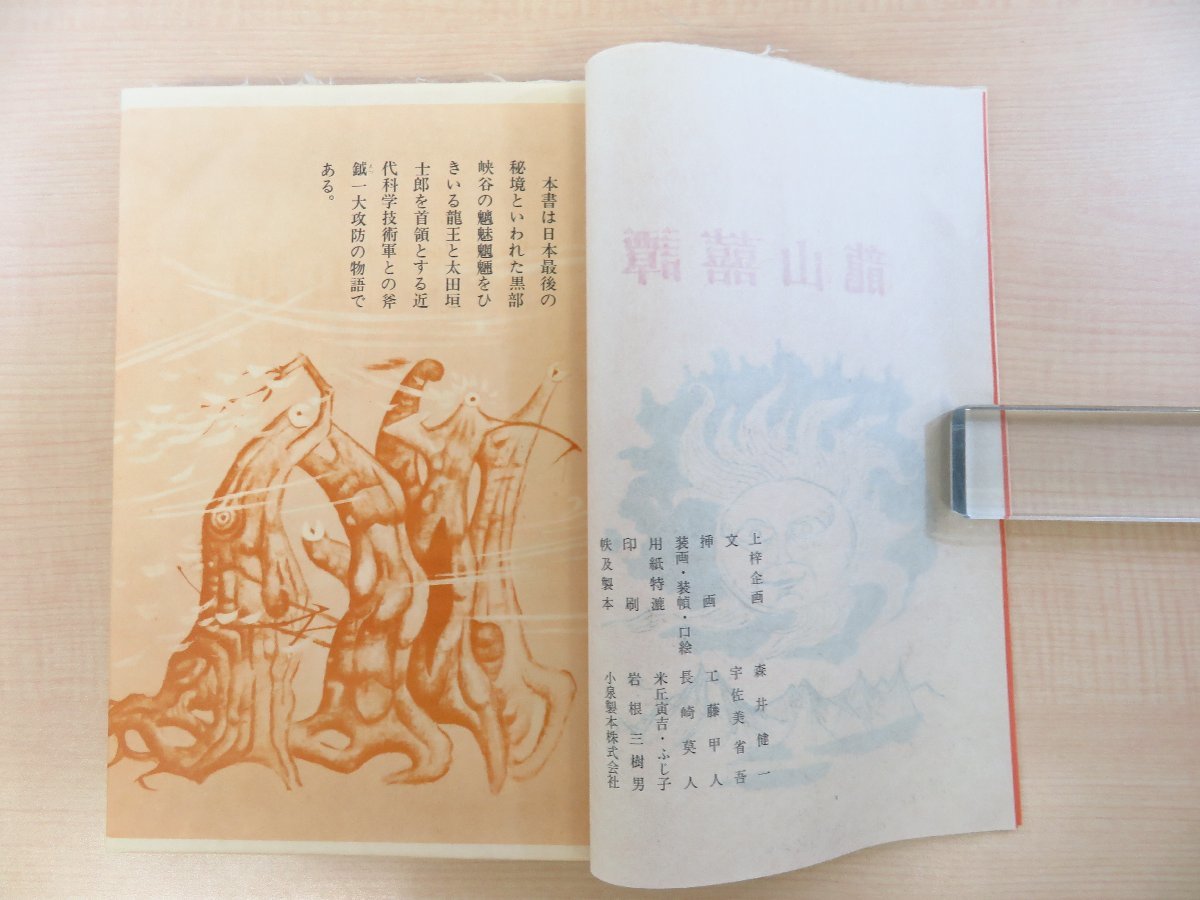 本書は日本最後の
秘境といわれた黒部
峡谷の魑魅魍魎をひ
きいる龍王と太田垣
士郎を首領とする近
代科学技術軍との斧
鉞一大攻防の物語で
ある。
龍山囍譚
上梓企画 森井健一
文 宇佐美省吾
挿画 工藤甲人
装画・装幀・口絵 長崎莫人
用紙特漉 米丘寅吉・ふじ子
印刷 岩根三樹男
帙及製本 小泉製本株式会社